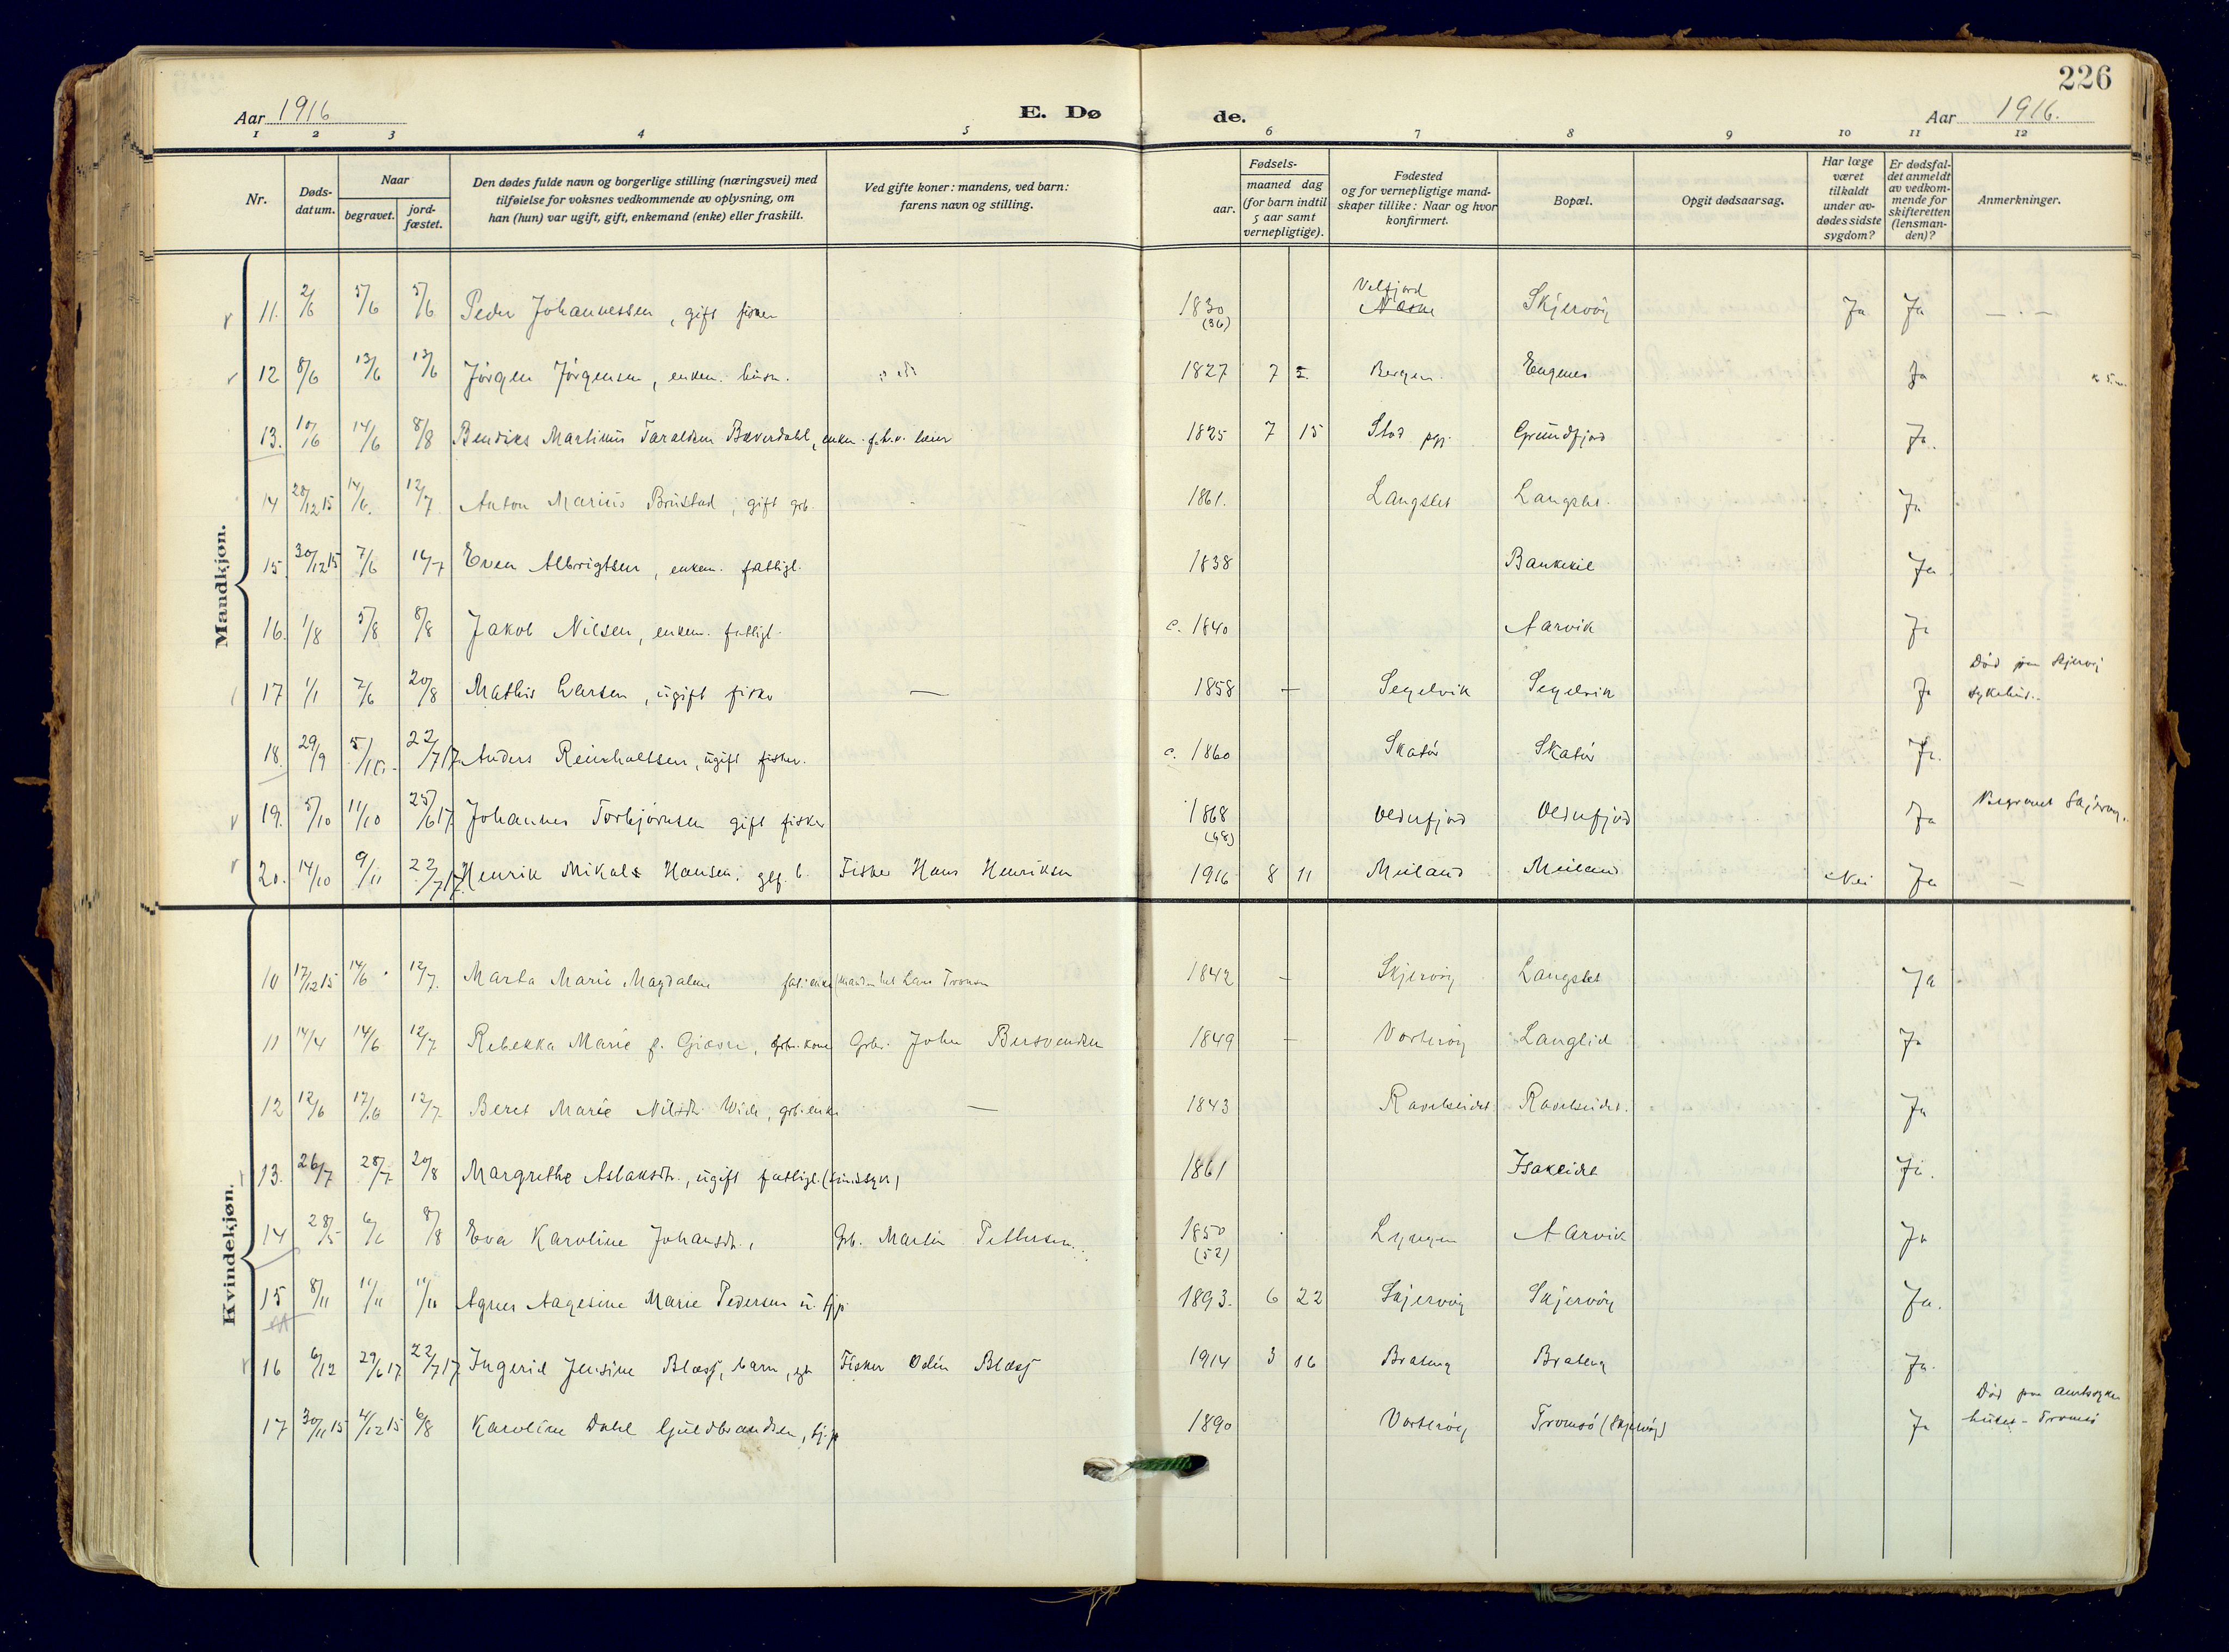 226
Aar 1916
E. Dø
de.
Aar 1916.
1 2 3 4 5 6 7 8 9 10 11 12
Nr.
Døds-
datum.
Naar
begravet.
jord-
fæstet.
Den dødes fulde navn og borgerlige stilling (næringsvei) med
tilføielse for voksnes vedkommende av oplysning, om
han (hun) var ugift, gift, enkemand (enke) eller fraskilt.
Ved gifte koner: mandens, ved barn:
farens navn og stilling.
Fødsels-
aar.
maaned dag
(for barn indtil
5 aar samt
vernepligtige).
Fødested
og for vernepligtige mand-
skaper tillike: Naar og hvor
konfirmert.
Bopæl.
Opgit dødsaarsag.
Har læge
været
tilkaldt
under av-
dødes sidste
sygdom?
Er dødsfal-
det anmeldt
av vedkom-
mende for
skifteretten
(lensman-
den)?
Anmerkninger.
Mandkjøn.
11. 2/6 5/6 5/6 Peder Johannessen, gift fisker 1830 (36) Velfjord Skjervöy Ja Ja — . —
12 8/6 13/6 13/6 Jörgen Jörgensen, enkem. 1827 7 Bergen. Engenes Ja
13. 10/6 14/6 8/8 Bendiks Martinus Taraldsen Bæverdahl, enkem. f.h.v. 1825 7 15 Stod pgj. Grundfjord Ja.
14 28/12 15 14/6. 12/7. Anton Marius Brustad, gift grb. - 1861. Langslet Langslet. Ja
15. 30/12 15 7/6 14/7 Even Albrigtsen, enkem. fattigl. 1838 Bankekil Ja
16. 1/8 5/8 8/8 Jakob Nilsen, enkem. fattigl. c. 1840 Aarvik Ja
17 1/1 7/6 20/8 Mathis Larsen, ugift fisker — 1858 — Segelvik Segelvik Ja Död paa Skjervöy
sykehus.
18. 29/9 5/ 22/7 17 Anders Reinholtsen, ugift fisker. c. 1860 Skatör Skatör Ja.
19. 5/10 11/10 25/6 17 Johannes Torbjörnsen gift fisker 1868 (68) Olderfjord Olderfjord Ja Begravet Skjervöy.
20. 14/10 9/11 22/7 17 Henrik Mikal Hansen, b. Fisker Hans Henriksen 1916 8 11 Meiland Meiland Nei Ja —
Kvindekjøn.
10 17/12 15 14/6 12/7. Marta Marie Magdalene fat. enke (manden het Lars 1842 — Skjervöy Langslet Ja
11 14/4 14/6 12/7 Rebekka Marie f. Giæver, grb. kone Grb. John 1849 — Vorteröy Langlid Ja
12 12/6 17/6 12/7. Beret Marie Nilsdtr. grb. enke — 1843 Ravelseidet. Ravelseidet. Ja
13. 26/7 28/7 20/8 Margrethe Aslaksdtr., ugift fattigl. (sindssyk) 1861 Isakeidet Ja.
14 28/5 6/6 8/8 Eva Karoline Johansdtr., Grb. Martin Pettersen. 1850 (52) Lyngen Aarvik Ja
15 8/11 11/11 11/11 Agnes Aagesine Marie Pedersen u. tjp. 1893. 6 22 Skjervöy Skjervöy Ja.
16 6/12 29/6 17 22/7 17 Ingerid Jensine Blæsj, barn, Fisker Odin Blæsj 1914 3 16 Ja.
17 30/11 15 4/12 15 6/8 Karoline Dahl Guldbrandsen, tj.p. 1890 Vorteröy Tromsö (Skjervöy) Ja Död paa amtssyke
huset - Tromsö